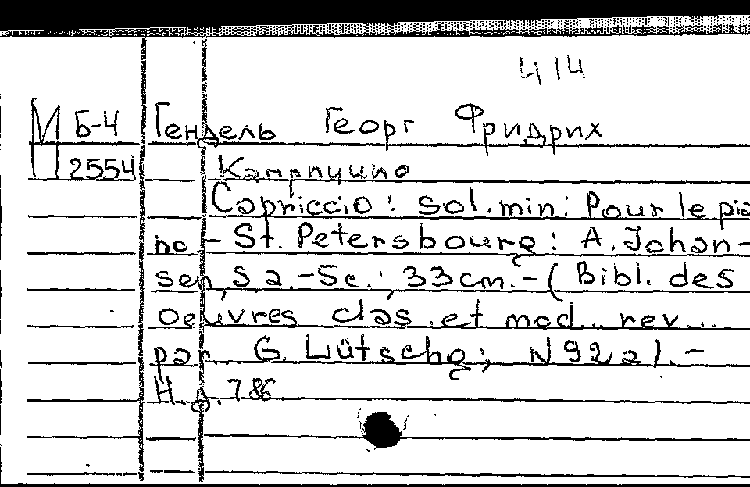 414
М Б-4 Гендель Георг Фридрих
П 2554 Каприччио
Capriccio: sol.min: Pour le pia
no - St. Petersbourg: A. Johan-
sen, S a. - 5c.; 33cm. - (Bibl. des
oeuvres clas. et mod. rev...
par G. Lütschg; N 92a). -
Н.д. 786